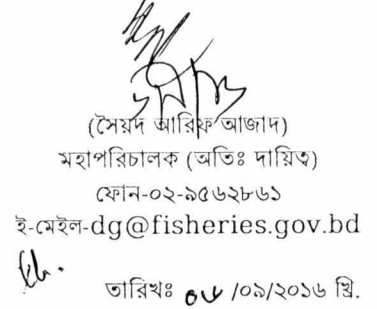 (সৈয়দ আরিফ আজাদ)
মহাপরিচালক (অতিঃ দায়িত্ব)
ফোন-০২-৯৫৬২৮৬১
ই-মেইল-dg@fisheries.gov.bd
তারিখঃ ০৮/০৯/২০১৬ খ্রি.